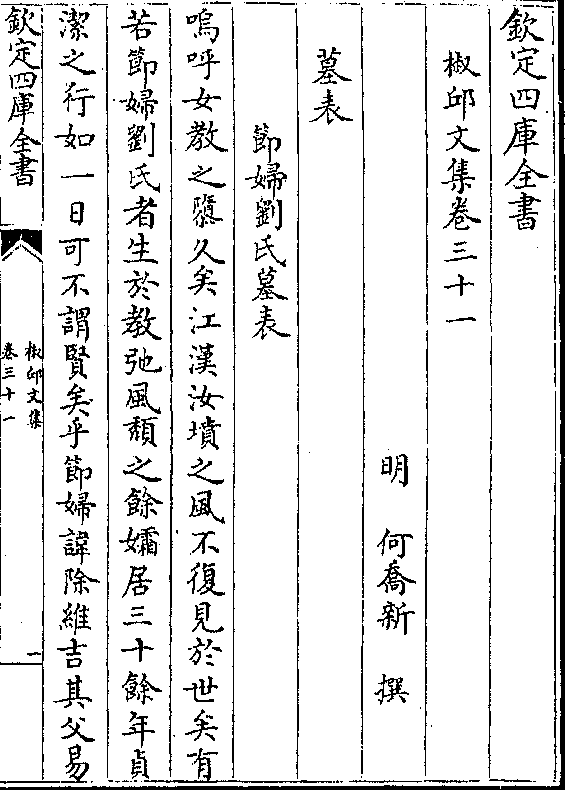 欽定四庫全書
椒邱文集卷三十一
明　何喬新　撰
墓表
節婦劉氏墓表
嗚呼女教之隳久矣江漢汝墳之風不復見於世矣有
若節婦劉氏者生於教弛風頽之餘孀居三十餘年貞
潔之行如一日可不謂賢矣乎節婦諱除維吉其父易
欽定四庫全書
椒邱文集
卷三十一
一